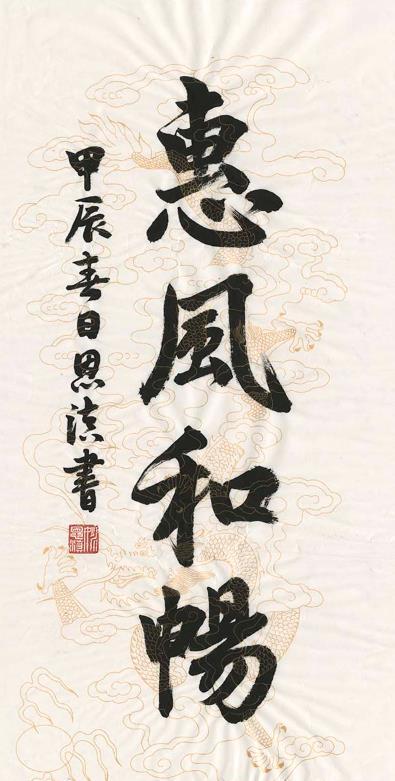 惠風和暢
甲辰春日恩書